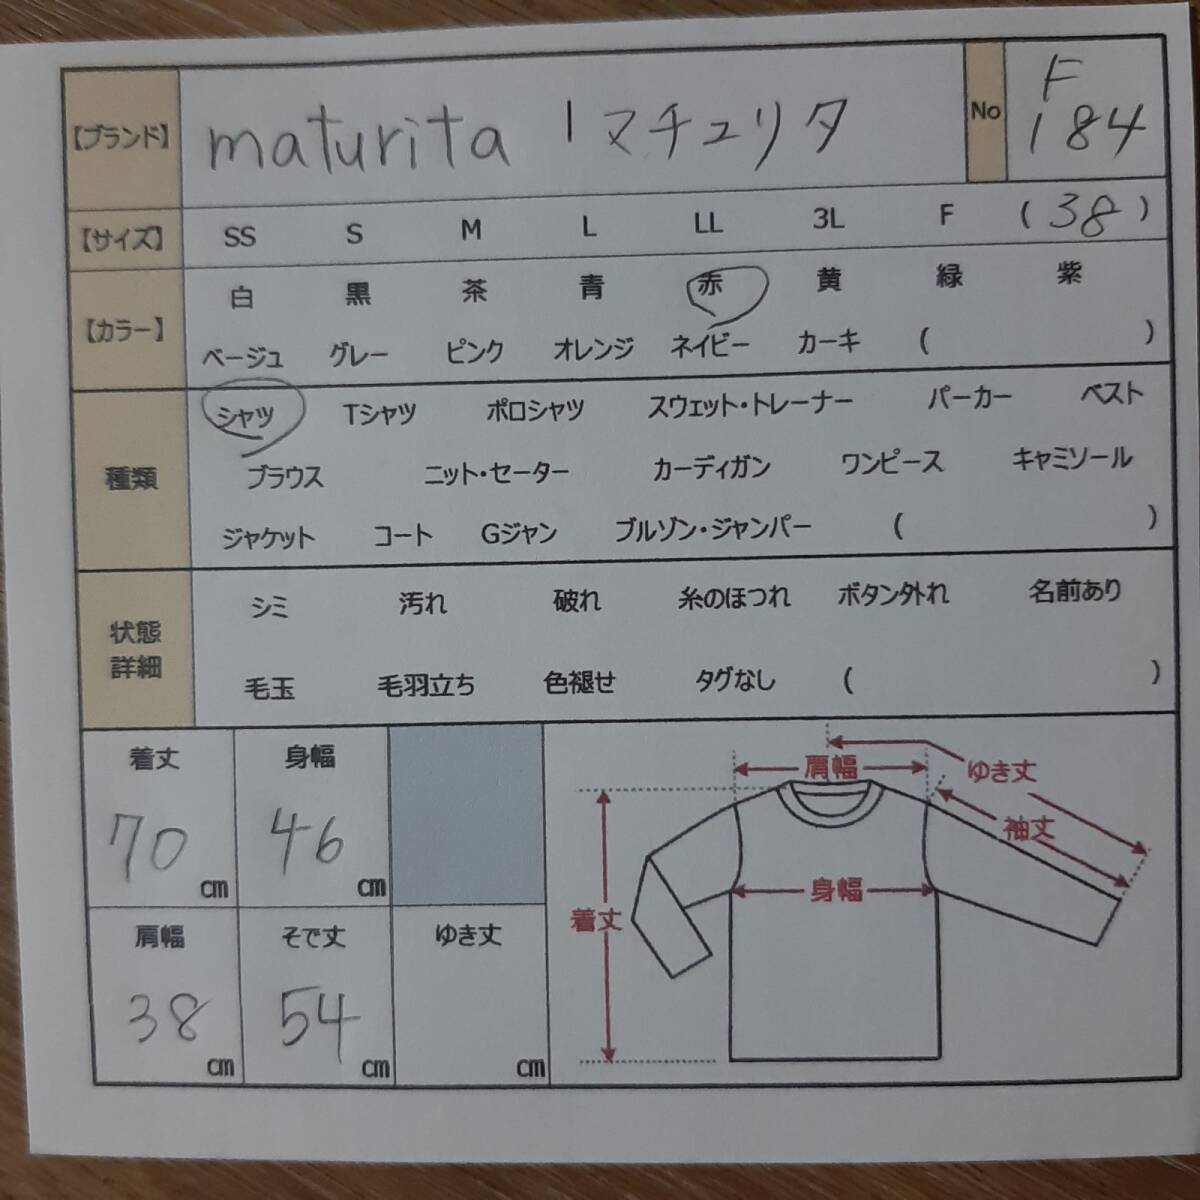 【ブランド】 maturita | マチュリタ No F 184
【サイズ】 SS S M L LL 3L F ( 38 )
【カラー】 白 黒 茶 青 赤 黄 緑 紫
ベージュ グレー ピンク オレンジ ネイビー カーキ ( )
種類 シャツ Tシャツ ポロシャツ スウェット・トレーナー パーカー ベスト
ブラウス ニット・セーター カーディガン ワンピース キャミソール
ジャケット コート Gジャン ブルゾン・ジャンパー ( )
状態
詳細
シミ 汚れ 破れ 糸のほつれ ボタン外れ 名前あり
毛玉 毛羽立ち 色褪せ タグなし ( )
着丈 70 cm
身幅 46 cm
肩幅 38 cm
そで丈 54 cm
ゆき丈 cm
肩幅
ゆき丈
袖丈
身幅
着丈